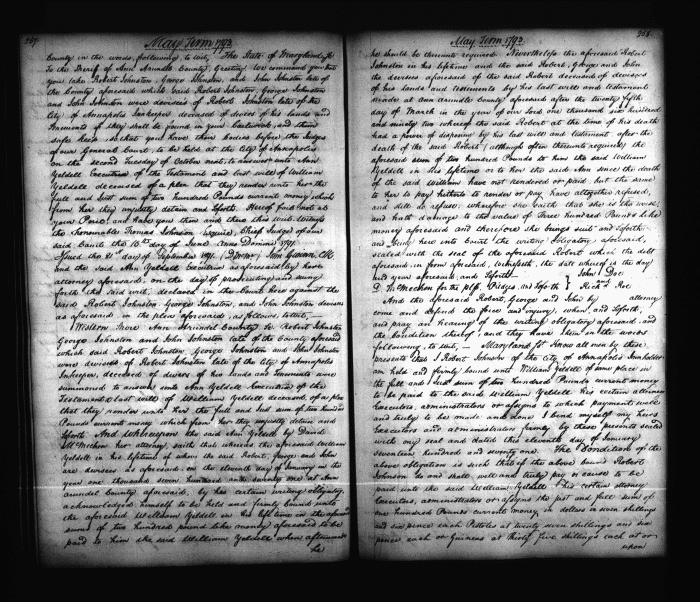 257
May Term 1793
County in the words following, to wit, The State of Maryland
To the Sheriff of Ann Arundle County, Greeting We command you that
you take Robert Johnston, George Johnston, and John Johnston late of
the County aforesaid which said Robert Johnston, George Johnston
and John Johnston were devisees of Robert Johnston late of the
City of Annapolis Innkeeper deceased of divers of his lands and
Tenements if they shall be found in your Bailiwick, and them
safe keep so that you have their bodies before the Judges
of our General Court, to be held at the City of Annapolis
on the second Tuesday of October next, to answer unto Ann
Yeldell Executrix of the Testament and last will of William
Yeldell deceased of a plea that they render unto her the
full and just sum of two hundred Pounds current money which
from her they unjustly detain and so forth. Hereof fail not at
your Peril, and have you then and there this writ Witness
the Honourable Thomas Johnson Esquire, Chief Judge of our
said Court the day of June Anno Domini 1791.
Issued the 21st day of September 1791. John Gwinn Clk
And the said Ann Yeldell Executrix as aforesaid by her
attorney aforesaid, on the day of prosecuting and suing
forth the said writ, declared in the Court here against the
said Robert Johnston, George Johnston, and John Johnston devisees
as aforesaid, in the plea aforesaid, as follows, to wit,
Western Shore Ann Arundel County to wit Robert Johnston
George Johnston and John Johnston late of the County aforesaid
which said Robert Johnston, George Johnston and John Johnston
were devisees of Robert Johnston late of the City of Annapolis
Innkeeper, deceased, of divers of his lands and Tenements were
summoned to answer unto Ann Yeldell Executrix of the
Testament & last will of William Yeldell deceased, of a plea
that they render unto her the full and just sum of two hundred
Pounds current money which from her they unjustly detain and
so forth. And Whereupon the said Ann Yeldell by David
McMechen her attorney saith that whereas the aforesaid William
Yeldell in his lifetime of whom the said Robert, George and John
are devisees as aforesaid on the eleventh day of January in the
year one thousand seven hundred and seventy one at Ann
Arundel County aforesaid, by his certain writing obligatory,
acknowledged himself to be held and firmly bound unto
the aforesaid William Yeldell in his life time in the aforesaid
sum of two hundred pounds like money aforesaid to be
paid to him the said William Yeldell when afterwards
he
258
May Term 1793.
he should be thereunto required. Nevertheless the aforesaid Robert
Johnston in his lifetime and the said Robert, George and John
the devisees aforesaid of the said Robert deceased of divers
of his lands and tenements by his last will and testament
made at Ann Arundle County aforesaid after the twenty fifth
day of March in the year of our Lord one thousand six hundred
and ninety two whereof the said Robert at the time of his death
had a power of disposing by his last will and testament after the
death of the said Robert (although often thereunto required) the
aforesaid sum of two hundred Pounds to him the said William
Yeldell in his lifetime or to her the said Ann since the death
of the said William have not rendered or paid but the same
to her to pay hitherto to render or pay have altogether refused,
and still do refuse; wherefore she saith that she is the worse,
and hath damage to the value of three hundred Pounds like
money aforesaid and therefore she brings suit and so forth
and bring here into Court the writing obligatory aforesaid,
sealed with the seal of the aforesaid Robert which the debt
aforesaid in form aforesaid, the date whereof is the day
and year aforesaid, and so forth John Doe
D. McMechen for the plff Pledges, and so forth Richd. Roe
And the aforesaid Robert, George and John by attorney
come and defend the force and injury, when, and so forth,
and pray an hearing of the writing obligatory aforesaid, and
the Condition thereof, and they have them in the words
following, to wit, Maryland sst Know all men by these
presents that I Robert Johnston of the city of Annapolis Innholder
am held and firmly bound unto William Yeldell of same place in
the full and just sum of two hundred Pounds current money
to be paid to the said William Yeldell his certain attorney
Executors, administrators or assigns to which payment well
and truly to be made and done I bind myself my heirs
Executors and administrators firmly by these presents sealed
with my seal and dated this eleventh day of January
seventeen hundred and seventy one. The Condition of the
above obligation is such that if the above bound Robert
Johnston he and shall well and truly pay or cause to be
paid unto the said William Yeldell his certain attorney
Executors, administrators or assigns the just and full sum of
one hundred Pounds current money in dollars at seven shillings
and six pence each Pistoles at twenty seven shillings and six
pence each or Guineas at thirty five shillings each at or
upon